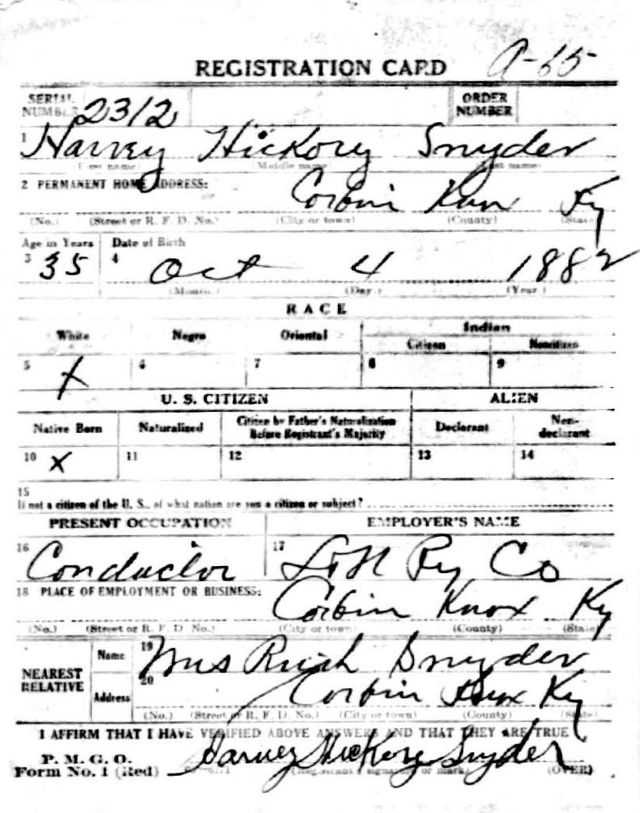 REGISTRATION CARD A-65
SERIAL NUMBER 2312 ORDER NUMBER
1 Harvey Hickory Snyder
First name Middle name Last name
2 PERMANENT HOME ADDRESS:
Corbin Knox Ky
(No.) (Street or R. F. D. No.) (City or town) (County) (State)
Age in Years Date of Birth
3 35 4 Oct 4 1882
(Month.) (Day.) (Year.)
RACE
White Negro Oriental Indian
Citizen Noncitizen
5 X 6 7 8 9
U. S. CITIZEN ALIEN
Native Born Naturalized Citizen by Father's Naturalization Before Registrant's Majority Declarant Non-declarant
10 X 11 12 13 14
15
If not a citizen of the U. S., of what nation are you a citizen or subject?
PRESENT OCCUPATION EMPLOYER'S NAME
16 Conductor 17 L&N Ry Co
18 PLACE OF EMPLOYMENT OR BUSINESS:
Corbin Knox Ky
(No.) (Street or R. F. D. No.) (City or town) (County) (State)
NEAREST RELATIVE Name 19 Mrs Snyder
Address 20 Corbin Knox Ky
(No.) (Street or R. F. D. No.) (City or town) (County) (State)
I AFFIRM THAT I HAVE VERIFIED ABOVE ANSWERS AND THAT THEY ARE TRUE
P. M. G. O.
Form No. 1 (Red) Harvey Hickory Snyder
(Registrant's signature or mark) (OVER)